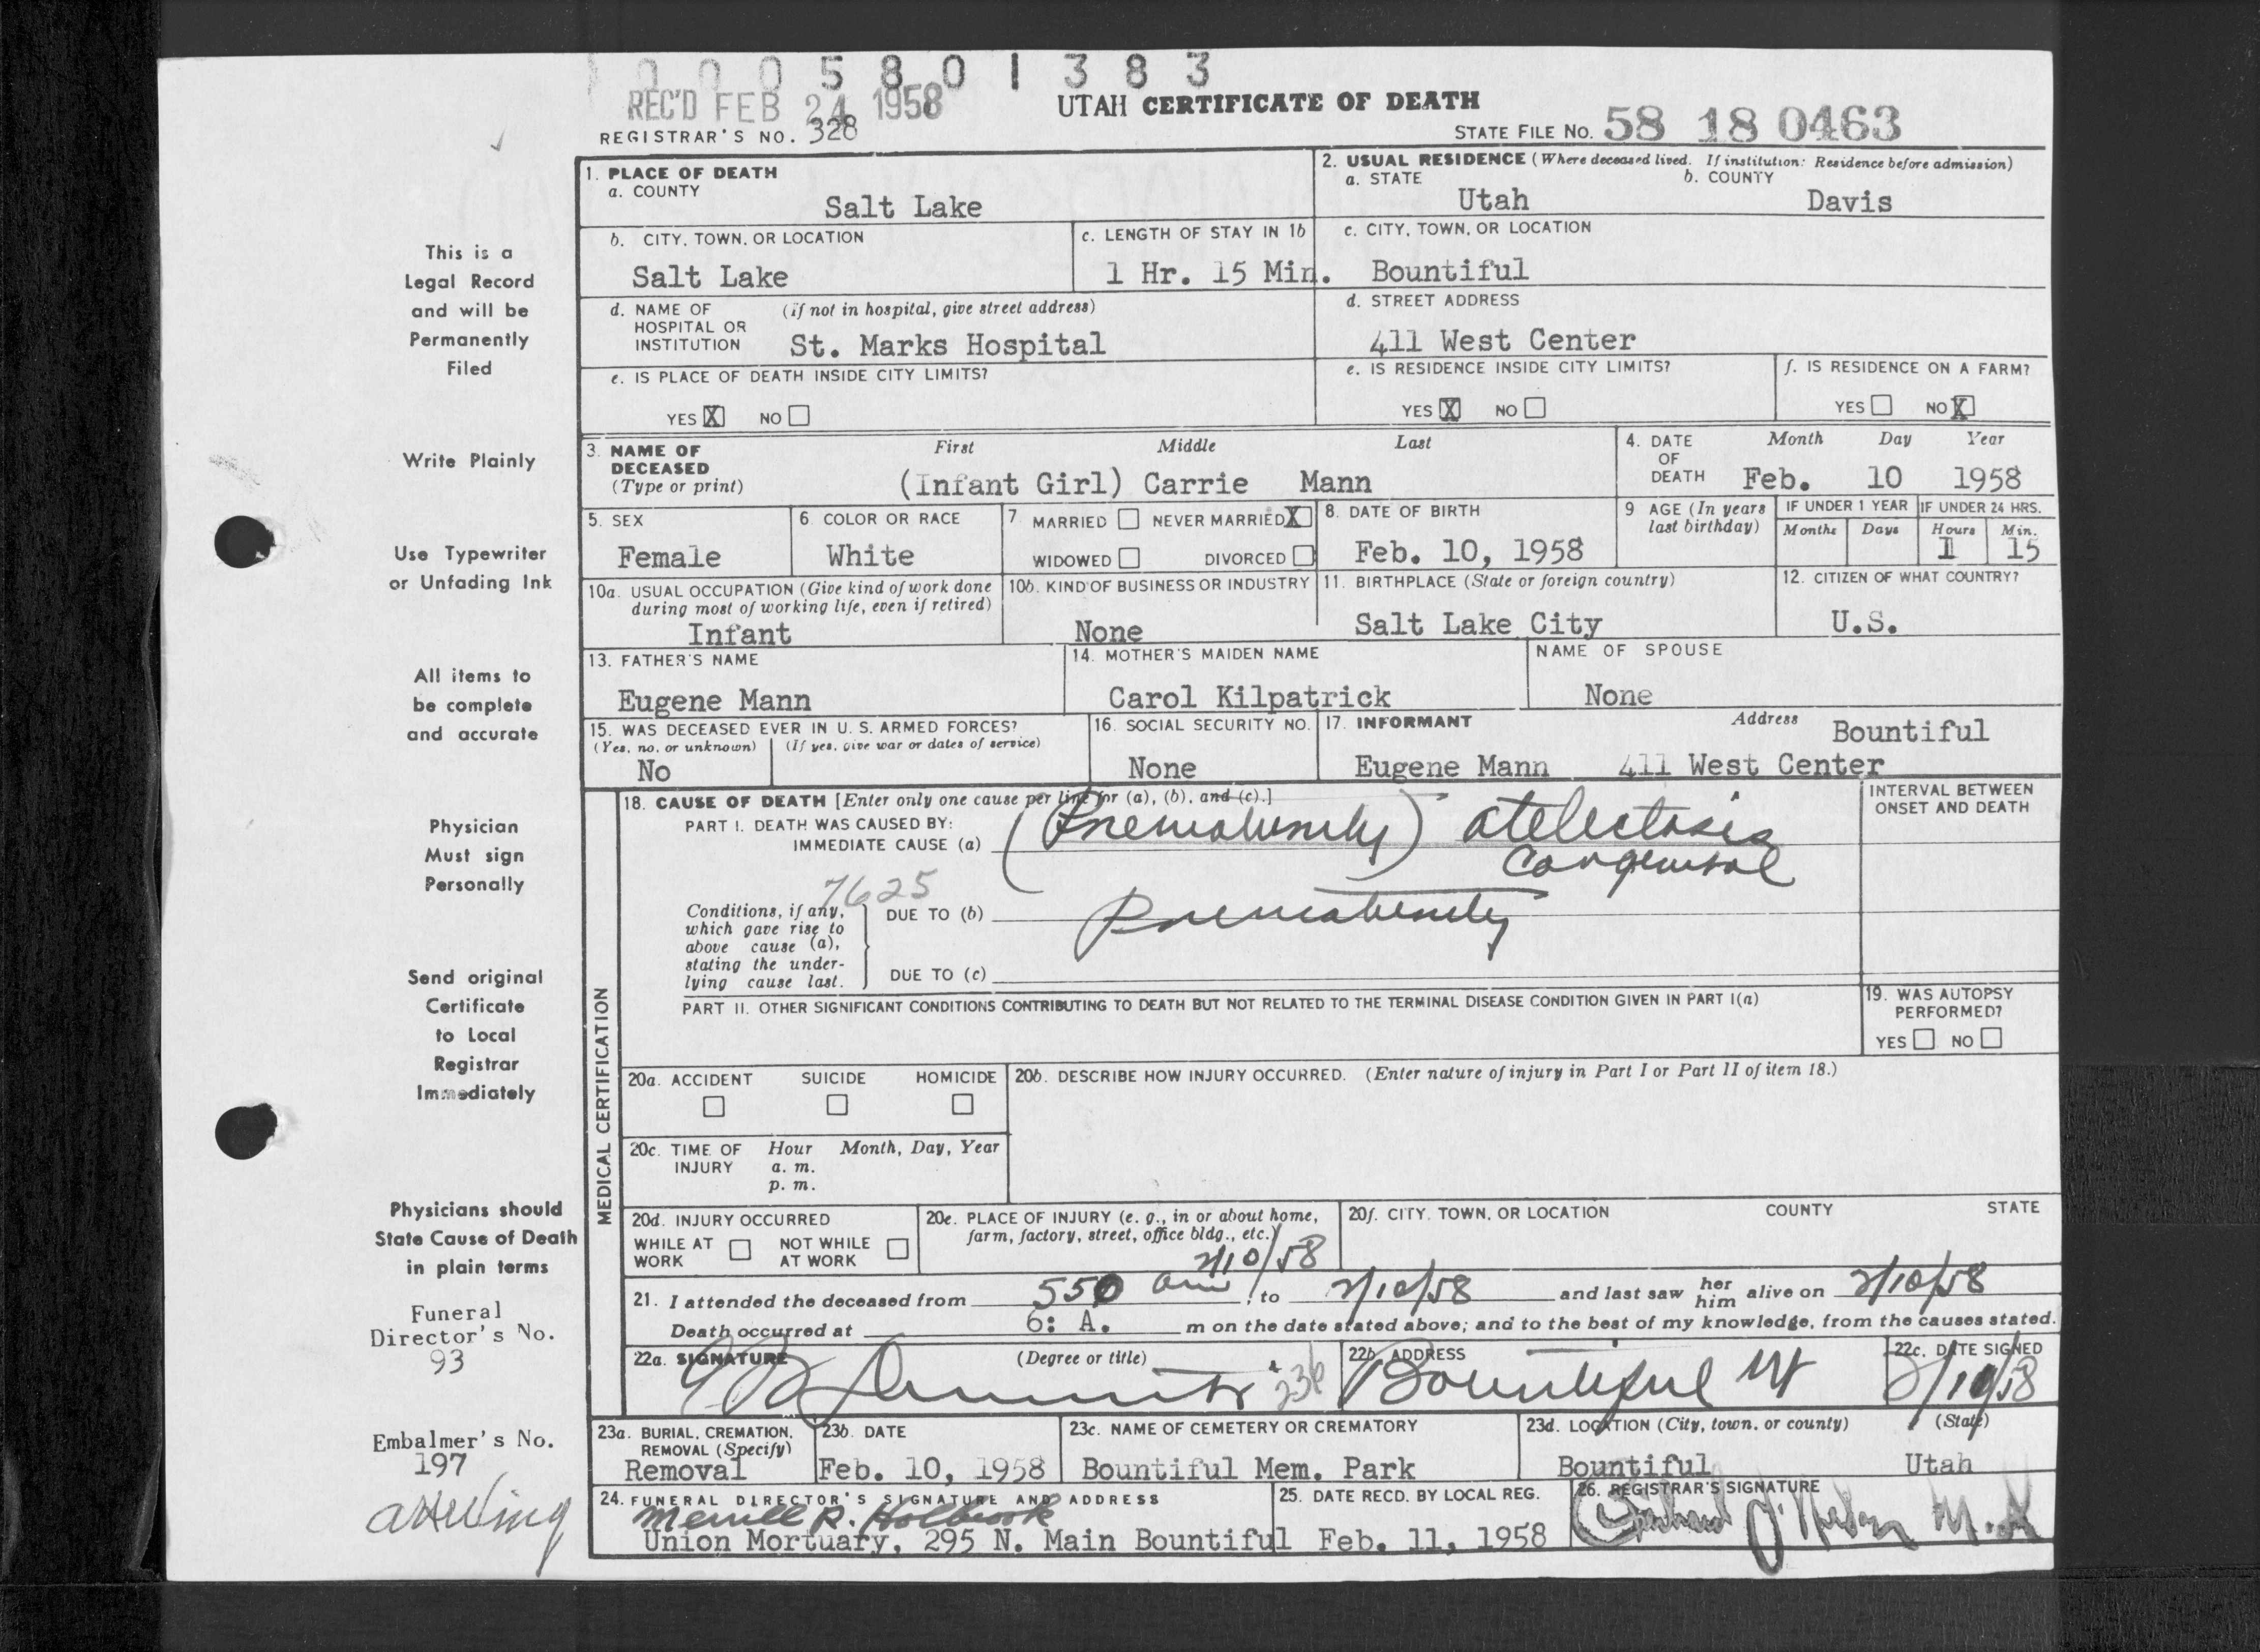 0005801383
REC'D FEB 24 1958
UTAH CERTIFICATE OF DEATH
REGISTRAR'S NO. 328
STATE FILE NO. 58 18 0463
This is a
Legal Record
and will be
Permanently
Filed
Write Plainly
Use Typewriter
or Unfading Ink
All items to
be complete
and accurate
Physician
Must sign
Personally
Send original
Certificate
to Local
Registrar
Immediately
Physicians should
State Cause of Death
in plain terms
Funeral
Director's No.
93
Embalmer's No.
197
1. PLACE OF DEATH
a. COUNTY
Salt Lake
2. USUAL RESIDENCE (Where deceased lived. If institution: Residence before admission)
a. STATE
Utah
b. COUNTY
Davis
b. CITY, TOWN, OR LOCATION
Salt Lake
c. LENGTH OF STAY IN 1b
1 Hr. 15 Min.
c. CITY, TOWN, OR LOCATION
Bountiful
d. NAME OF (if not in hospital, give street address)
HOSPITAL OR
INSTITUTION St. Marks Hospital
d. STREET ADDRESS
411 West Center
e. IS PLACE OF DEATH INSIDE CITY LIMITS?
YES X NO
e. IS RESIDENCE INSIDE CITY LIMITS?
YES X NO
f. IS RESIDENCE ON A FARM?
YES NO X
3. NAME OF
DECEASED
(Type or print)
First Middle Last
(Infant Girl) Carrie Mann
4. DATE
OF
DEATH
Month Day Year
Feb. 10 1958
5. SEX
Female
6. COLOR OR RACE
White
7. MARRIED NEVER MARRIED X
WIDOWED DIVORCED
8. DATE OF BIRTH
Feb. 10, 1958
9 AGE (In years
last birthday)
IF UNDER 1 YEAR
Months Days
IF UNDER 24 HRS.
Hours Min.
1 15
10a. USUAL OCCUPATION (Give kind of work done
during most of working life, even if retired)
Infant
10b. KIND OF BUSINESS OR INDUSTRY
None
11. BIRTHPLACE (State or foreign country)
Salt Lake City
12. CITIZEN OF WHAT COUNTRY?
U.S.
13. FATHER'S NAME
Eugene Mann
14. MOTHER'S MAIDEN NAME
Carol Kilpatrick
NAME OF SPOUSE
None
15. WAS DECEASED EVER IN U. S. ARMED FORCES?
(Yes, no, or unknown) (If yes, give war or dates of service)
No
16. SOCIAL SECURITY NO.
None
17. INFORMANT Address
Bountiful
Eugene Mann 411 West Center
MEDICAL CERTIFICATION
18. CAUSE OF DEATH [Enter only one cause per line for (a), (b), and (c).]
PART I. DEATH WAS CAUSED BY:
IMMEDIATE CAUSE (a) (Prematurity) atelectasis
congenital
INTERVAL BETWEEN
ONSET AND DEATH
7625
Conditions, if any,
which gave rise to
above cause (a),
stating the under-
lying cause last.
DUE TO (b) Prematurity
DUE TO (c)
PART II. OTHER SIGNIFICANT CONDITIONS CONTRIBUTING TO DEATH BUT NOT RELATED TO THE TERMINAL DISEASE CONDITION GIVEN IN PART I(a)
19. WAS AUTOPSY
PERFORMED?
YES NO
20a. ACCIDENT SUICIDE HOMICIDE
20b. DESCRIBE HOW INJURY OCCURRED. (Enter nature of injury in Part I or Part II of item 18.)
20c. TIME OF Hour Month, Day, Year
INJURY a. m.
p. m.
20d. INJURY OCCURRED
WHILE AT NOT WHILE
WORK AT WORK
20e. PLACE OF INJURY (e. g., in or about home,
farm, factory, street, office bldg., etc.)
20f. CITY, TOWN, OR LOCATION COUNTY STATE
2/10/58
21. I attended the deceased from 550 am, to 2/10/58 and last saw her him alive on 2/10/58
Death occurred at 6: A. m on the date stated above; and to the best of my knowledge, from the causes stated.
22a. SIGNATURE (Degree or title)
22b. ADDRESS
Bountiful Ut
22c. DATE SIGNED
2/10/58
23a. BURIAL, CREMATION,
REMOVAL (Specify)
Removal
23b. DATE
Feb. 10, 1958
23c. NAME OF CEMETERY OR CREMATORY
Bountiful Mem. Park
23d. LOCATION (City, town, or county) (State)
Bountiful Utah
24. FUNERAL DIRECTOR'S SIGNATURE AND ADDRESS
Merrill R. Holbrook
Union Mortuary, 295 N. Main Bountiful
25. DATE RECD. BY LOCAL REG.
Feb. 11, 1958
26. REGISTRAR'S SIGNATURE